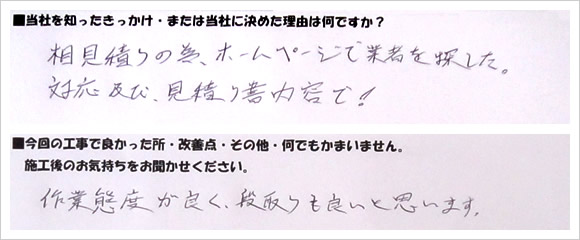 ■当社を知ったきっかけ・または当社に決めた理由は何ですか？
相見積りの為、ホームページで業者を探した。
対応及び、見積り書内容で！
■今回の工事で良かった所・改善点・その他・何でもかまいません。
施工後のお気持ちをお聞かせください。
作業態度が良く、段取りも良いと思います。